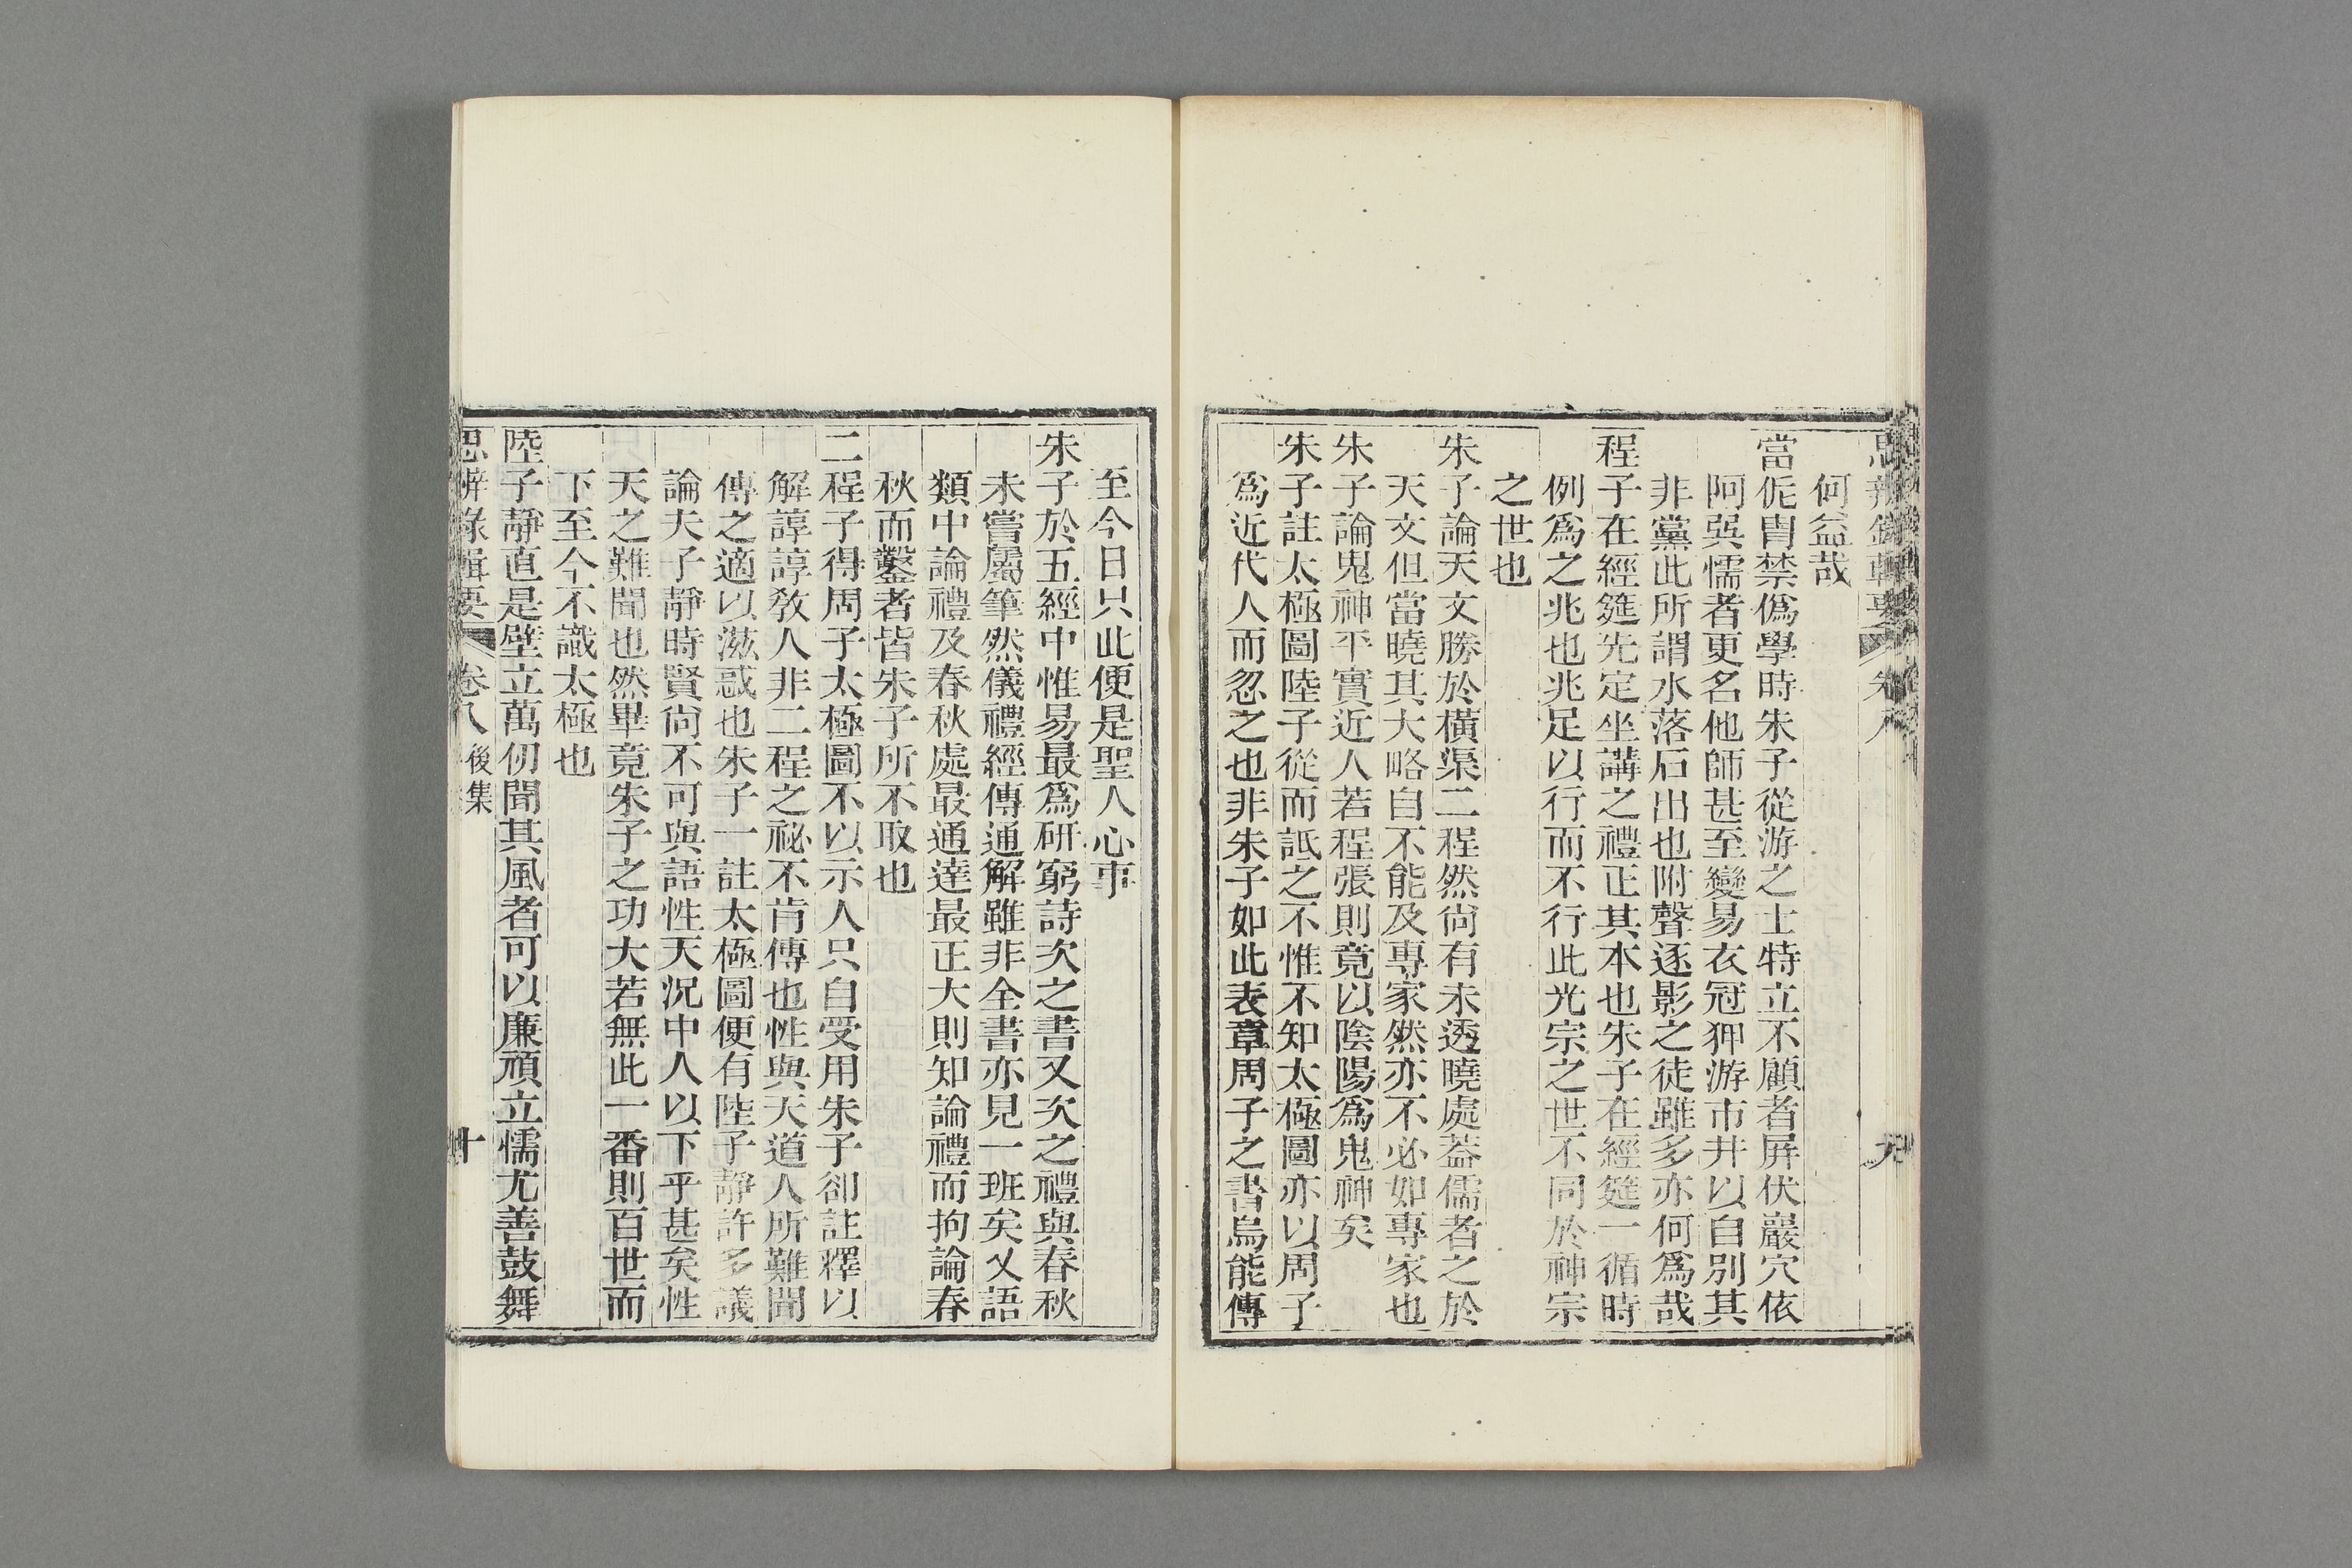 思辨錄輯要 卷八 九
何益哉
當侂胄禁僞學時朱子從游之士特立不顧者屏伏巖穴依
阿巽懦者更名他師甚至變易衣冠狎游市井以自別其
非黨此所謂水落石出也附聲逐影之徒雖多亦何爲哉
程子在經筵先定坐講之禮正其本也朱子在經筵一循時
例爲之兆也兆足以行而不行此光宗之世不同於神宗
之世也
朱子論天文勝於橫渠二程然尙有未透曉處葢儒者之於
天文但當曉其大略自不能及專家然亦不必如專家也
朱子論鬼神平實近人若程張則竟以陰陽爲鬼神矣
朱子註太極圖陸子從而詆之不惟不知太極圖亦以周子
爲近代人而忽之也非朱子如此表章周子之書烏能傳
至今日只此便是聖人心事
朱子於五經中惟易最爲研窮詩次之書又次之禮與春秋
未嘗屬筆然儀禮經傳通解雖非全書亦見一班矣乂語
類中論禮及春秋處最通達最正大則知論禮而拘論春
秋而鑿者皆朱子所不取也
二程子得周子太極圖不以示人只自受用朱子卻註釋以
解諄諄敎人非二程之祕不肯傳也性與天道人所難聞
傳之適以滋惑也朱子一註太極圖便有陸子靜許多議
論夫子靜時賢尙不可與語性天況中人以下乎甚矣性
天之難聞也然畢竟朱子之功大若無此一番則百世而
下至今不識太極也
陸子靜直是壁立萬仞聞其風者可以廉頑立懦尤善鼓舞
思辨錄輯要 卷八 後集 十